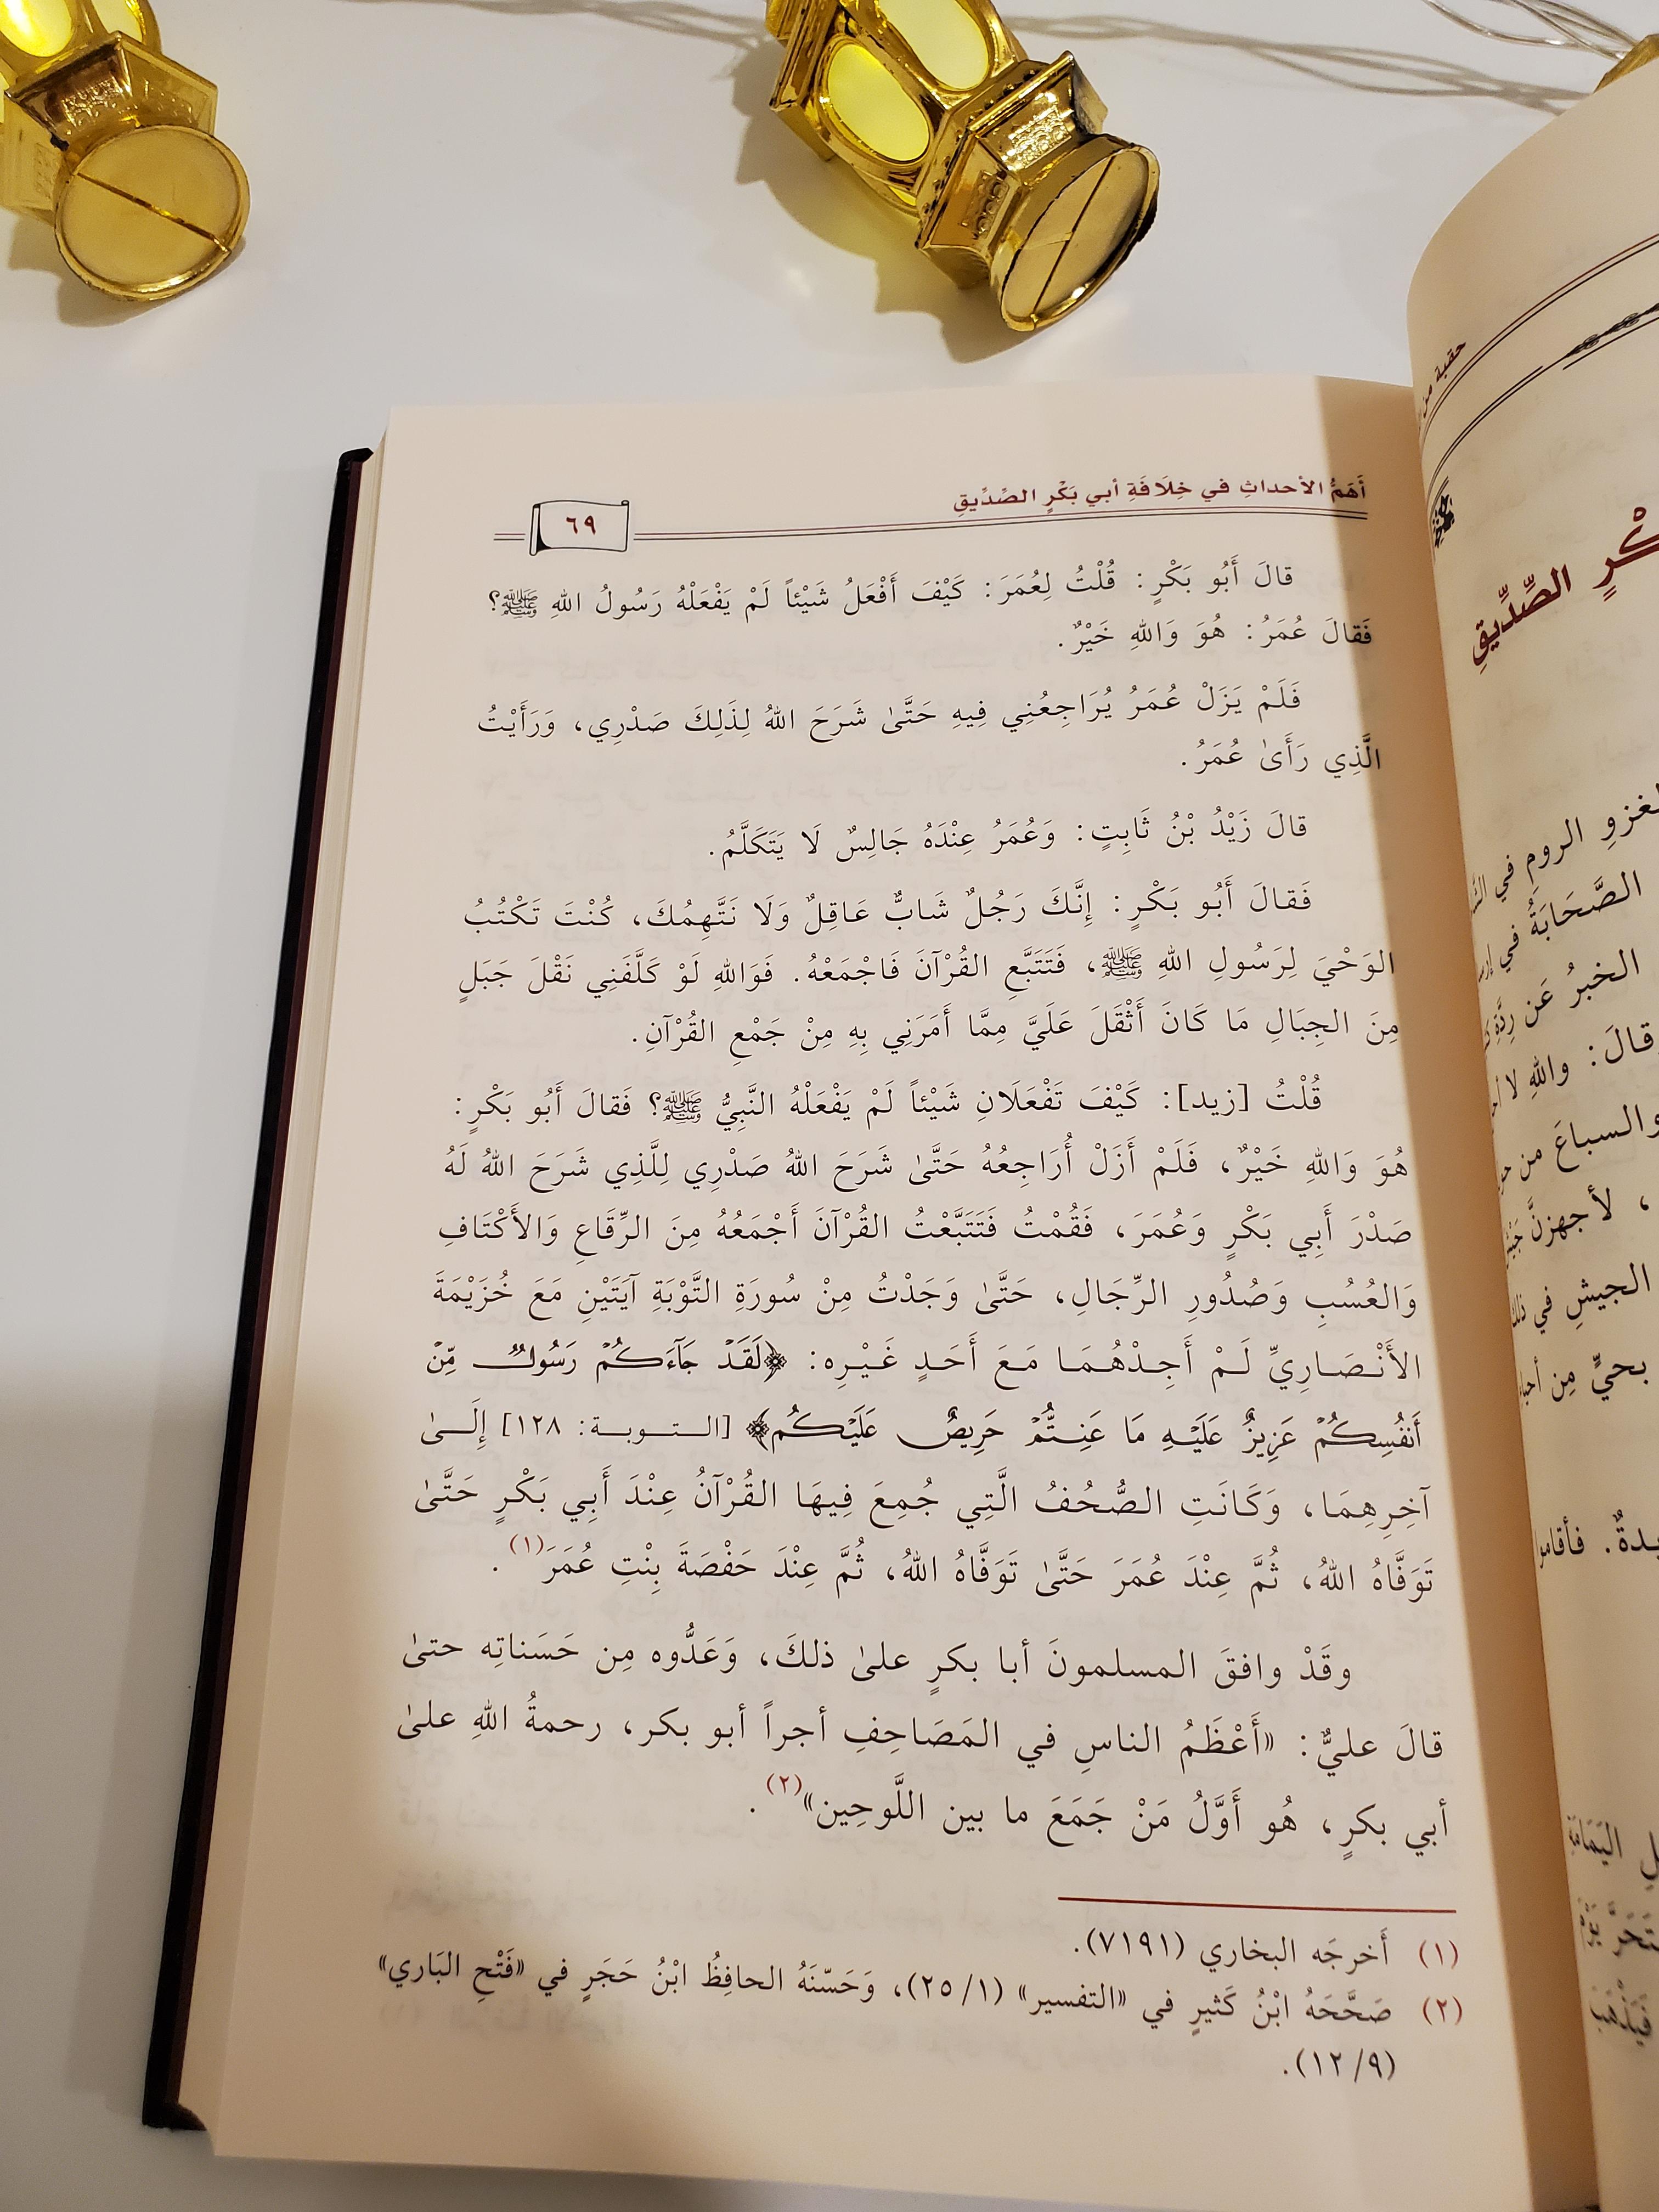 أَهَمُّ الأحداثِ في خِلَافَةِ أبي بَكْرٍ الصِّدِّيقِ
٦٩
قالَ أَبُو بَكْرٍ: قُلْتُ لِعُمَرَ: كَيْفَ أَفْعَلُ شَيْئاً لَمْ يَفْعَلْهُ رَسُولُ اللهِ ﷺ؟
فَقالَ عُمَرُ: هُوَ وَاللهِ خَيْرٌ.
فَلَمْ يَزَلْ عُمَرُ يُرَاجِعُنِي فِيهِ حَتَّىٰ شَرَحَ اللهُ لِذَلِكَ صَدْرِي، وَرَأَيْتُ
الَّذِي رَأَىٰ عُمَرُ.
قالَ زَيْدُ بْنُ ثَابِتٍ: وَعُمَرُ عِنْدَهُ جَالِسٌ لَا يَتَكَلَّمُ.
فَقالَ أَبُو بَكْرٍ: إِنَّكَ رَجُلٌ شَابٌّ عَاقِلٌ وَلَا نَتَّهِمُكَ، كُنْتَ تَكْتُبُ
الوَحْيَ لِرَسُولِ اللهِ ﷺ، فَتَتَبَّعِ القُرْآنَ فَاجْمَعْهُ. فَوَاللهِ لَوْ كَلَّفَنِي نَقْلَ جَبَلٍ
مِنَ الجِبَالِ مَا كَانَ أَثْقَلَ عَلَيَّ مِمَّا أَمَرَنِي بِهِ مِنْ جَمْعِ القُرْآنِ.
قُلْتُ [زيد]: كَيْفَ تَفْعَلَانِ شَيْئاً لَمْ يَفْعَلْهُ النَّبِيُّ ﷺ؟ فَقالَ أَبُو بَكْرٍ:
هُوَ وَاللهِ خَيْرٌ، فَلَمْ أَزَلْ أُرَاجِعُهُ حَتَّىٰ شَرَحَ اللهُ صَدْرِي لِلَّذِي شَرَحَ اللهُ لَهُ
صَدْرَ أَبِي بَكْرٍ وَعُمَرَ، فَقُمْتُ فَتَتَبَّعْتُ القُرْآنَ أَجْمَعُهُ مِنَ الرِّقَاعِ وَالأَكْتَافِ
وَالعُسُبِ وَصُدُورِ الرِّجَالِ، حَتَّىٰ وَجَدْتُ مِنْ سُورَةِ التَّوْبَةِ آيَتَيْنِ مَعَ خُزَيْمَةَ
الأَنْصَارِيِّ لَمْ أَجِدْهُمَا مَعَ أَحَدٍ غَيْرِهِ: ﴿لَقَدْ جَآءَكُمْ رَسُولٌ مِّنْ
أَنفُسِكُمْ عَزِيزٌ عَلَيْهِ مَا عَنِتُّمْ حَرِيصٌ عَلَيْكُم﴾ [التوبة: ١٢٨] إِلَىٰ
آخِرِهِمَا، وَكَانَتِ الصُّحُفُ الَّتِي جُمِعَ فِيهَا القُرْآنُ عِنْدَ أَبِي بَكْرٍ حَتَّىٰ
تَوَفَّاهُ اللهُ، ثُمَّ عِنْدَ عُمَرَ حَتَّىٰ تَوَفَّاهُ اللهُ، ثُمَّ عِنْدَ حَفْصَةَ بِنْتِ عُمَرَ(١).
وقَدْ وافقَ المسلمونَ أبا بكرٍ علىٰ ذلكَ، وَعَدُّوه مِن حَسَناتِه حتىٰ
قالَ عليٌّ: «أَعْظَمُ الناسِ في المَصَاحِفِ أجراً أبو بكر، رحمةُ اللهِ علىٰ
أبي بكرٍ، هُو أَوَّلُ مَنْ جَمَعَ ما بين اللَّوحِين»(٢).
(١) أَخرجَه البخاري (٧١٩١).
(٢) صَحَّحَهُ ابْنُ كَثيرٍ في «التفسير» (٢٥/١)، وَحَسّنَهُ الحافِظُ ابْنُ حَجَرٍ في «فَتْحِ البَاري»
(١٢/٩).
حقبة من
كْرٍ الصِّدِّيقِ
لغزوِ الروم في
الصَّحَابَةُ في
الخبرُ عَن رِدَّةِ
وقالَ: واللهِ لا
والسباعَ من
، لأجهزنَّ
الجيشِ في
بحيٍّ مِن
فأقاموا
اليَمَامَةِ